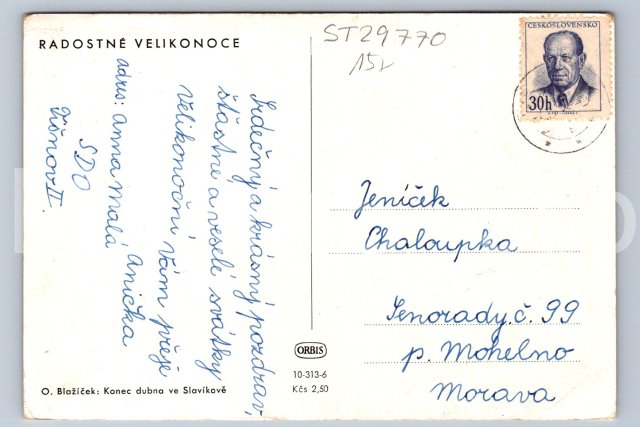 RADOSTNÉ VELIKONOCE
ST29770
15,-
ČESKOSLOVENSKO
30h
Srdečný a krásný pozdrav,
šťastné a veselé svátky
velikonoční Vám přeje
Anička
adres: Anna Malá
SDO
Tišnov II.
Jeníček
Chaloupka
Senorady č. 99
p. Mohelno
Morava
ORBIS
10-313-6
Kčs 2,50
O. Blažíček: Konec dubna ve Slavíkově